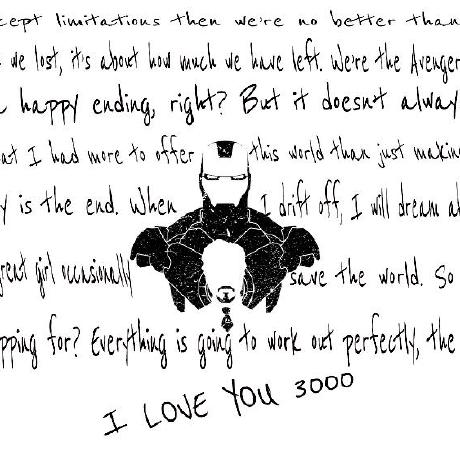 cept limitations then we're no better than
we lost, it's about how much we have left. We're the Avenger
happy ending, right? But it doesn't alway
at I had more to offer this world than just makin
y is the end. When I drift off, I will dream a
reat girl occasionally save the world. So
pping for? Everything is going to work out perfectly, the
I LOVE YOU 3000